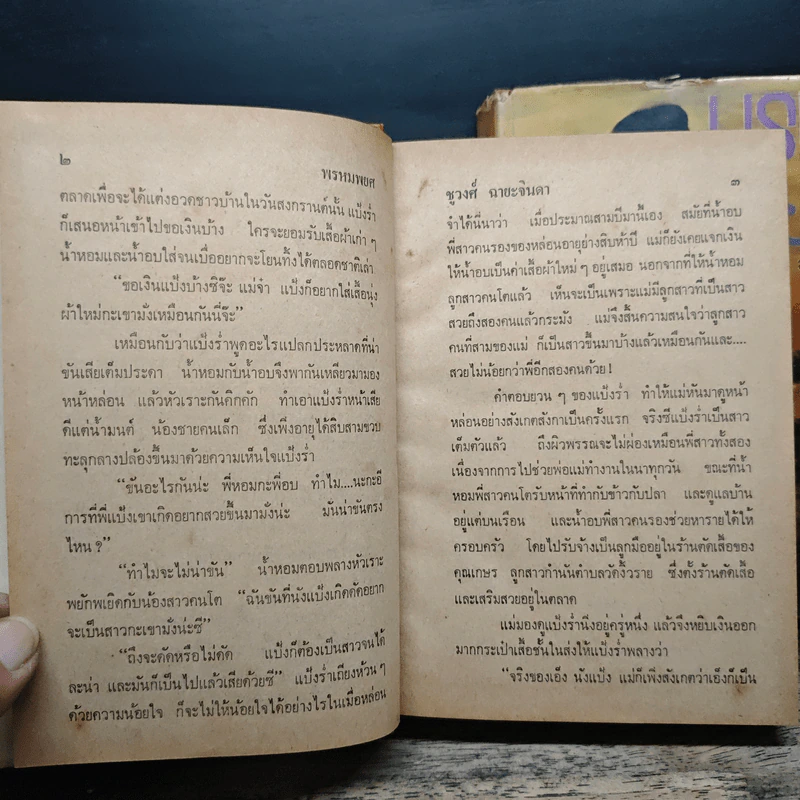 ๒
พรหมพยศ
ตลาดเพื่อจะได้แต่งอวดชาวบ้านในวันสงกรานต์นั้น แป้งร่ำ
ก็เสนอหน้าเข้าไปขอเงินบ้าง ใครจะยอมรับเสื้อผ้าเก่า ๆ
น้ำหอมและน้ำอบใส่จนเบื่ออยากจะโยนทิ้งได้ตลอดชาติเล่า
“ขอเงินแป้งบ้างซิจ๊ะ แม่จ๋า แป้งก็อยากใส่เสื้อนุ่ง
ผ้าใหม่กะเขามั่งเหมือนกันนี่จ๊ะ”
เหมือนกับว่าแป้งร่ำพูดอะไรแปลกประหลาดที่น่า
ขันเสียเต็มประดา น้ำหอมกับน้ำอบจึงพากันเหลียวมามอง
หน้าหล่อน แล้วหัวเราะกันคิกคัก ทำเอาแป้งร่ำหน้าเสีย
ดีแต่น้ำมนต์ น้องชายคนเล็ก ซึ่งเพิ่งอายุได้สิบสามขวบ
ทะลุกลางปล้องขึ้นมาด้วยความเห็นใจแป้งร่ำ
“ขันอะไรกันน่ะ พี่หอมกะพี่อบ ทำไม....นะกะอี
การที่พี่แป้งเขาเกิดอยากสวยขึ้นมามั่งน่ะ มันน่าขันตรง
ไหน ?”
“ทำไมจะไม่น่าขัน” น้ำหอมตอบพลางหัวเราะ
พยักพเยิดกับน้องสาวคนโต “ฉันขันที่นังแป้งเกิดดัดอยาก
จะเป็นสาวกะเขามั่งน่ะซี”
“ถึงจะดัดหรือไม่ดัด แป้งก็ต้องเป็นสาวจนได้
ละน่า และมันก็เป็นไปแล้วเสียด้วยซี” แป้งร่ำเถียงห้วน ๆ
ด้วยความน้อยใจ ก็จะไม่ให้น้อยใจได้อย่างไรในเมื่อหล่อน
ชูวงศ์ ฉายะจินดา
๓
จำได้นี่นาว่า เมื่อประมาณสามปีมานี้เอง สมัยที่น้ำอบ
พี่สาวคนรองของหล่อนอายุย่างสิบห้าปี แม่ก็ยังเคยแจกเงิน
ให้น้ำอบเป็นค่าเสื้อผ้าใหม่ ๆ อยู่เสมอ นอกจากที่ให้น้ำหอม
ลูกสาวคนโตแล้ว เห็นจะเป็นเพราะแม่มีลูกสาวที่เป็นสาว
สวยถึงสองคนแล้วกระมัง แม่จึงสิ้นความสนใจว่าลูกสาว
คนที่สามของแม่ ก็เป็นสาวขึ้นมาบ้างแล้วเหมือนกันและ....
สวยไม่น้อยกว่าพี่อีกสองคนด้วย !
คำตอบยวน ๆ ของแป้งร่ำ ทำให้แม่หันมาดูหน้า
หล่อนอย่างสังเกตสังกาเป็นครั้งแรก จริงซีแป้งร่ำเป็นสาว
เต็มตัวแล้ว ถึงผิวพรรณจะไม่ผ่องเหมือนพี่สาวทั้งสอง
เนื่องจากการไปช่วยพ่อแม่ทำงานในนาทุกวัน ขณะที่น้ำ
หอมพี่สาวคนโตรับหน้าที่ทำกับข้าวกับปลา และดูแลบ้าน
อยู่แต่บนเรือน และน้ำอบพี่สาวคนรองช่วยหารายได้ให้
ครอบครัว โดยไปรับจ้างเป็นลูกมืออยู่ในร้านตัดเสื้อของ
คุณเกษร ลูกสาวกำนันตำบลวัดงิ้วราย ซึ่งตั้งร้านตัดเสื้อ
และเสริมสวยอยู่ในตลาด
แม่มองดูแป้งร่ำนิ่งอยู่ครู่หนึ่ง แล้วจึงหยิบเงินออก
มากระเป๋าเสื้อชั้นในส่งให้แป้งร่ำพลางว่า
“จริงของเอ็ง นังแป้ง แม่ก็เพิ่งสังเกตว่าเอ็งก็เป็น